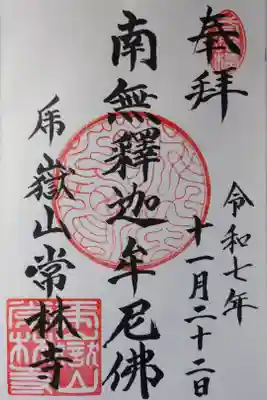 奉拝
令和七年
十一月二十二日
南無釋迦牟尼佛
乕嶽山常林寺